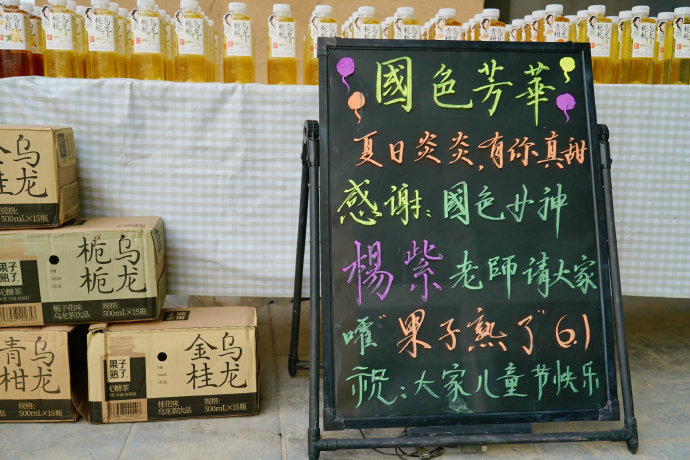 國色芳華
夏日炎炎,有你真甜
感谢:國色女神
楊紫老師请大家
嚯"果子熟了"6.1
祝:大家儿童节快乐
金桂
乌龙
规格:
500mL×15瓶
果子熟了
无糖茶
栀栀
乌龙
栀子花味
乌龙茶饮品
规格:
500mL×15瓶
青柑
乌龙
规格:
500mL×15瓶
果子熟了
无糖茶
金桂
乌龙
桂花味
乌龙茶饮品
规格:
500mL×15瓶